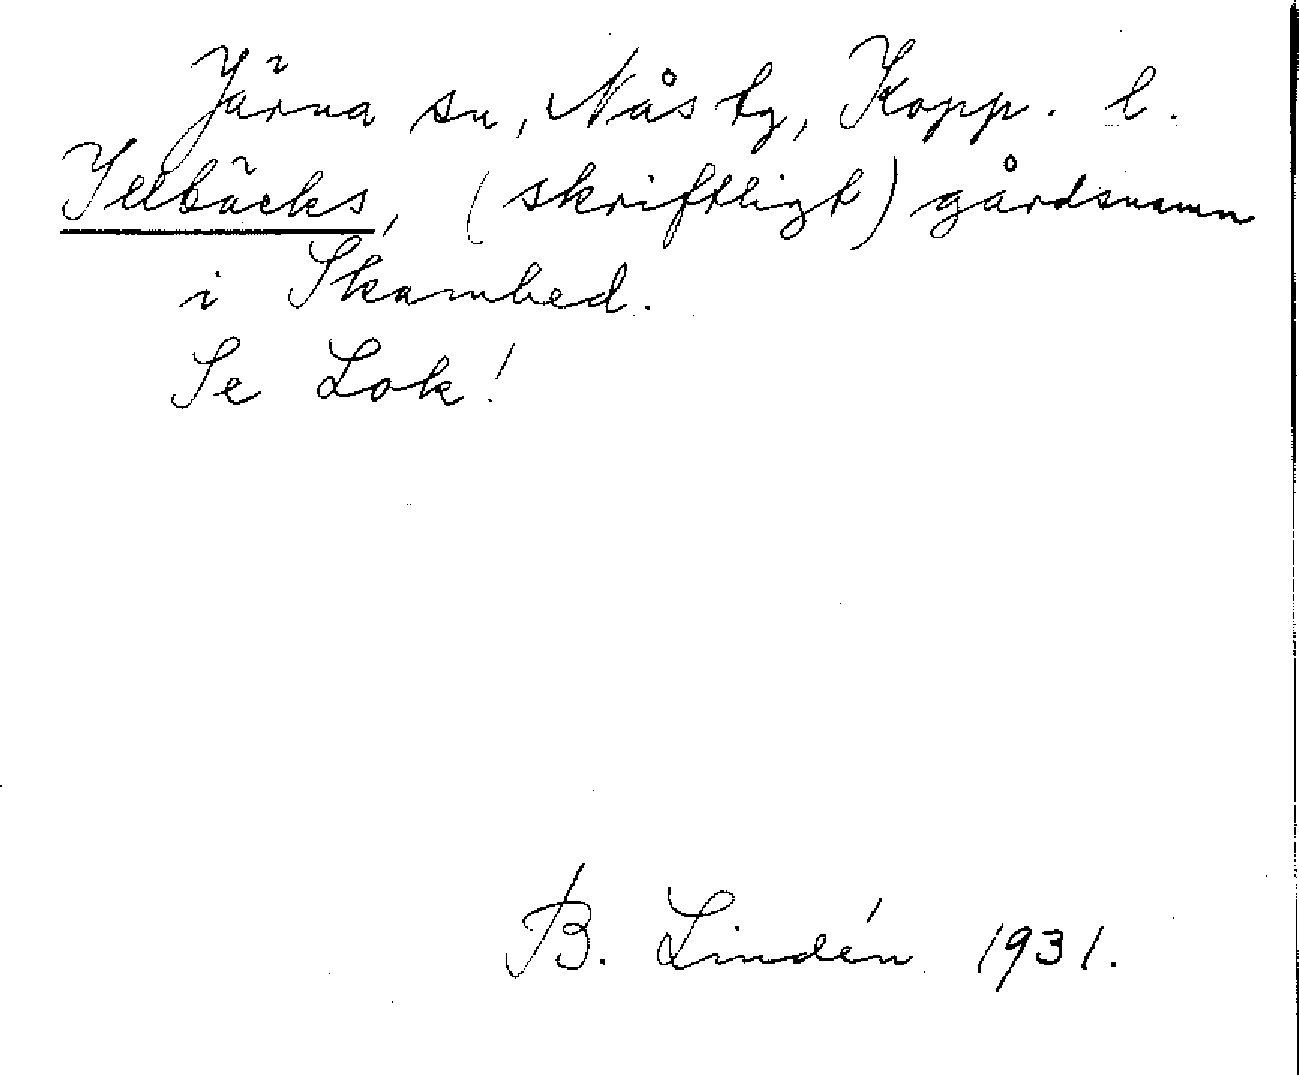 Järna sn, Nås tg, Kopp. l.
Illbäcks, (skriftligt) gårdsnamn
i Skambed.
Se Lok!
B. Lindén 1931.